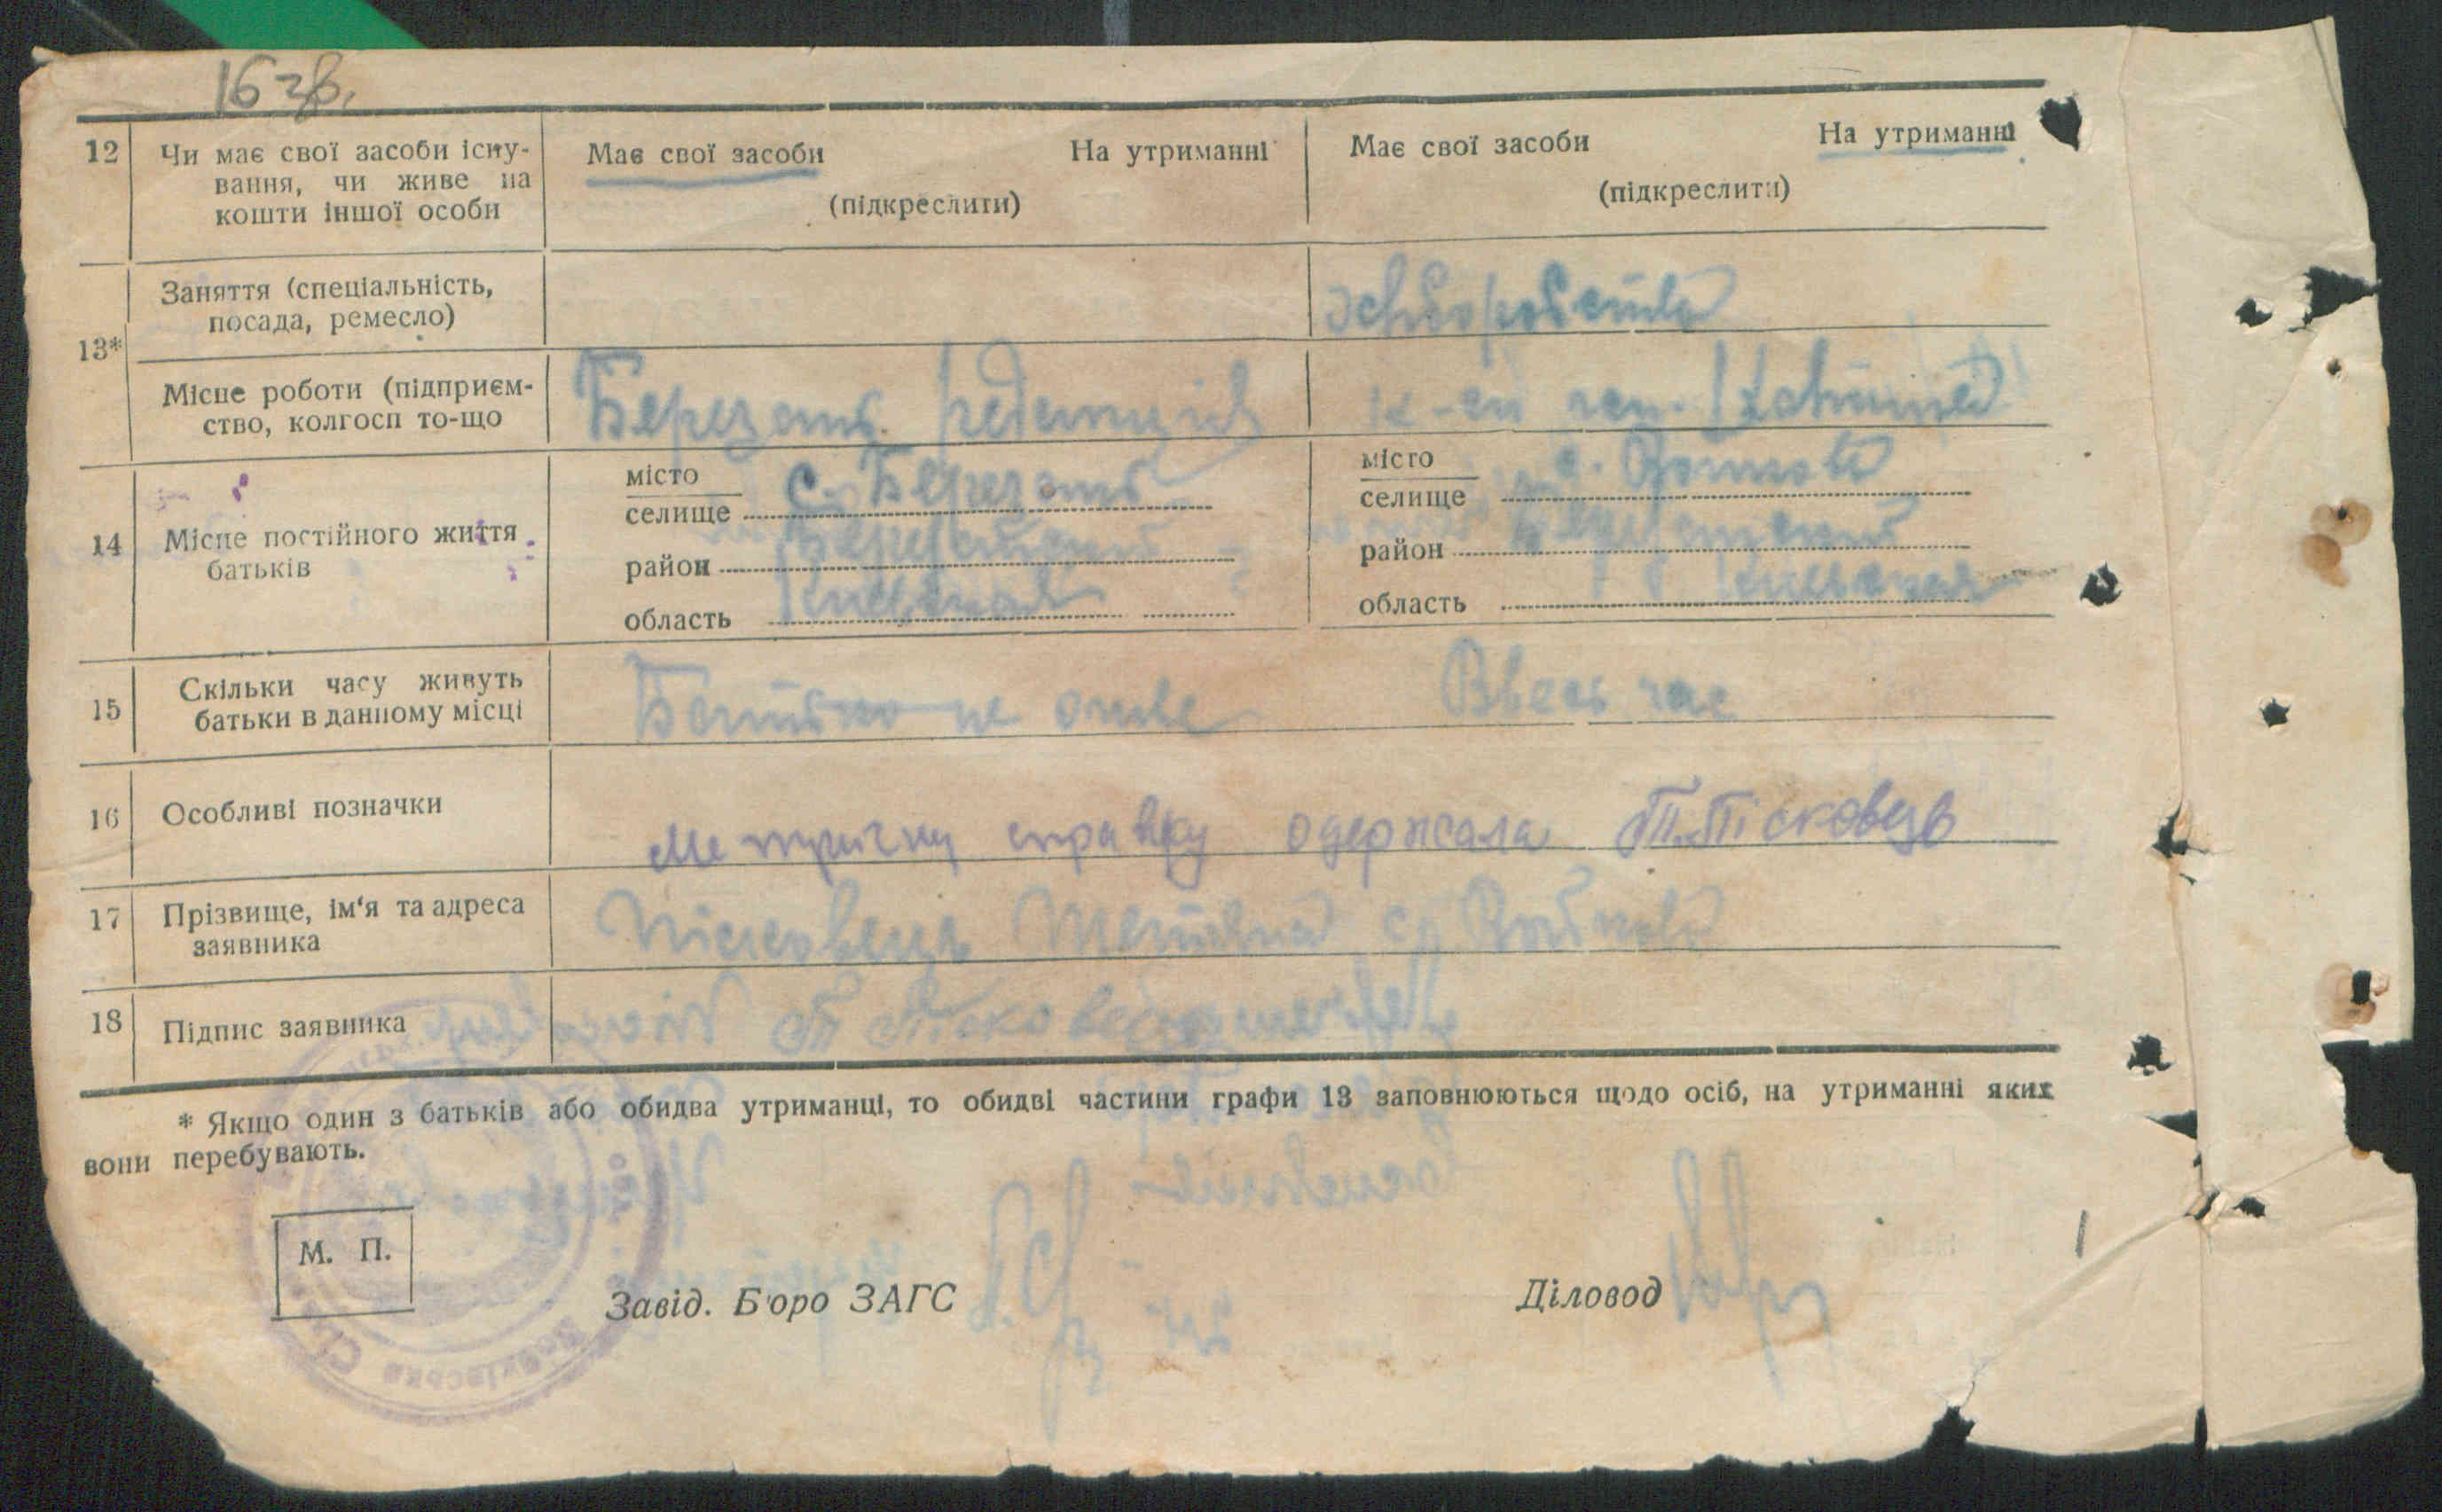 16 зв.
12 Чи має свої засоби існу-
вання, чи живе на
кошти іншої особи
Має свої засоби На утриманні
(підкреслити)
Має свої засоби На утриманні
(підкреслити)
13*
Заняття (спеціальність,
посада, ремесло)
Місце роботи (підприєм-
ство, колгосп то-що
Березань
14 Місце постійного життя
батьків
місто
селище с. Березань
район
область Київська
місто
селище с.
район
область Київська
15 Скільки часу живуть
батьки в данному місці
Батько не живе
Ввесь час
16 Особливі позначки
Метричну справку одержала Т. Пісковець
17 Прізвище, ім'я та адреса
заявника
Пісковець Тетяна с.
18 Підпис заявника
Т Пісковець
* Якщо один з батьків або обидва утриманці, то обидві частини графи 13 заповнюються щодо осіб, на утриманні яких
вони перебувають.
М. П.
Завід. Бюро ЗАГС
Діловод